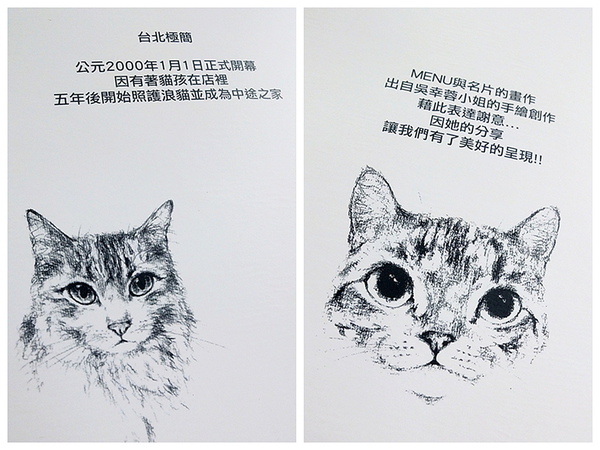 台北極簡
公元2000年1月1日正式開幕
因有著貓孩在店裡
五年後開始照護浪貓並成為中途之家
MENU與名片的畫作
出自吳幸蓉小姐的手繪創作
藉此表達謝意...
因她的分享
讓我們有了美好的呈現!!